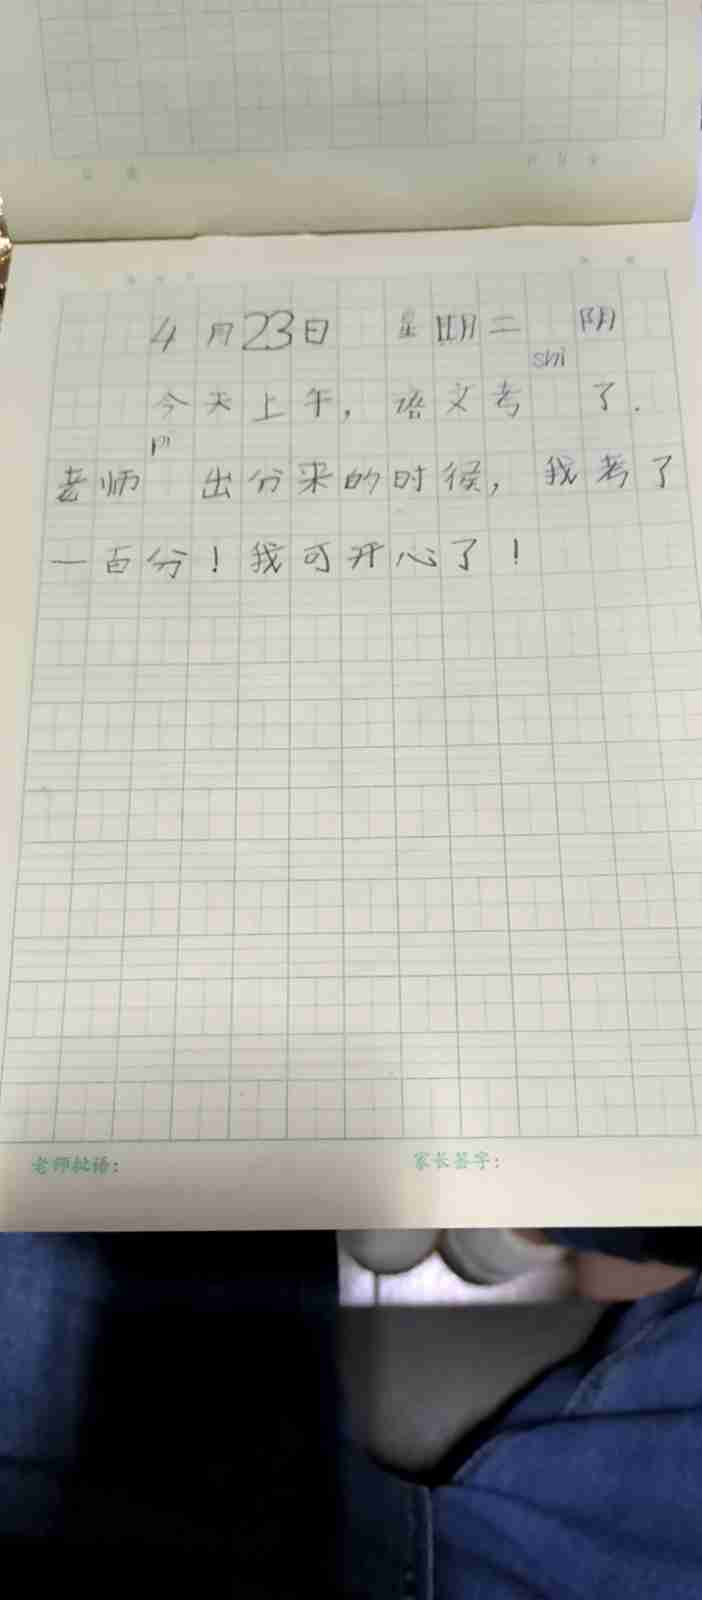 4月23日 星期二 阴
今天上午，语文考shi了.
老师pi出分来的时候，我考了
一百分！我可开心了！
老师批语：
家长签字：